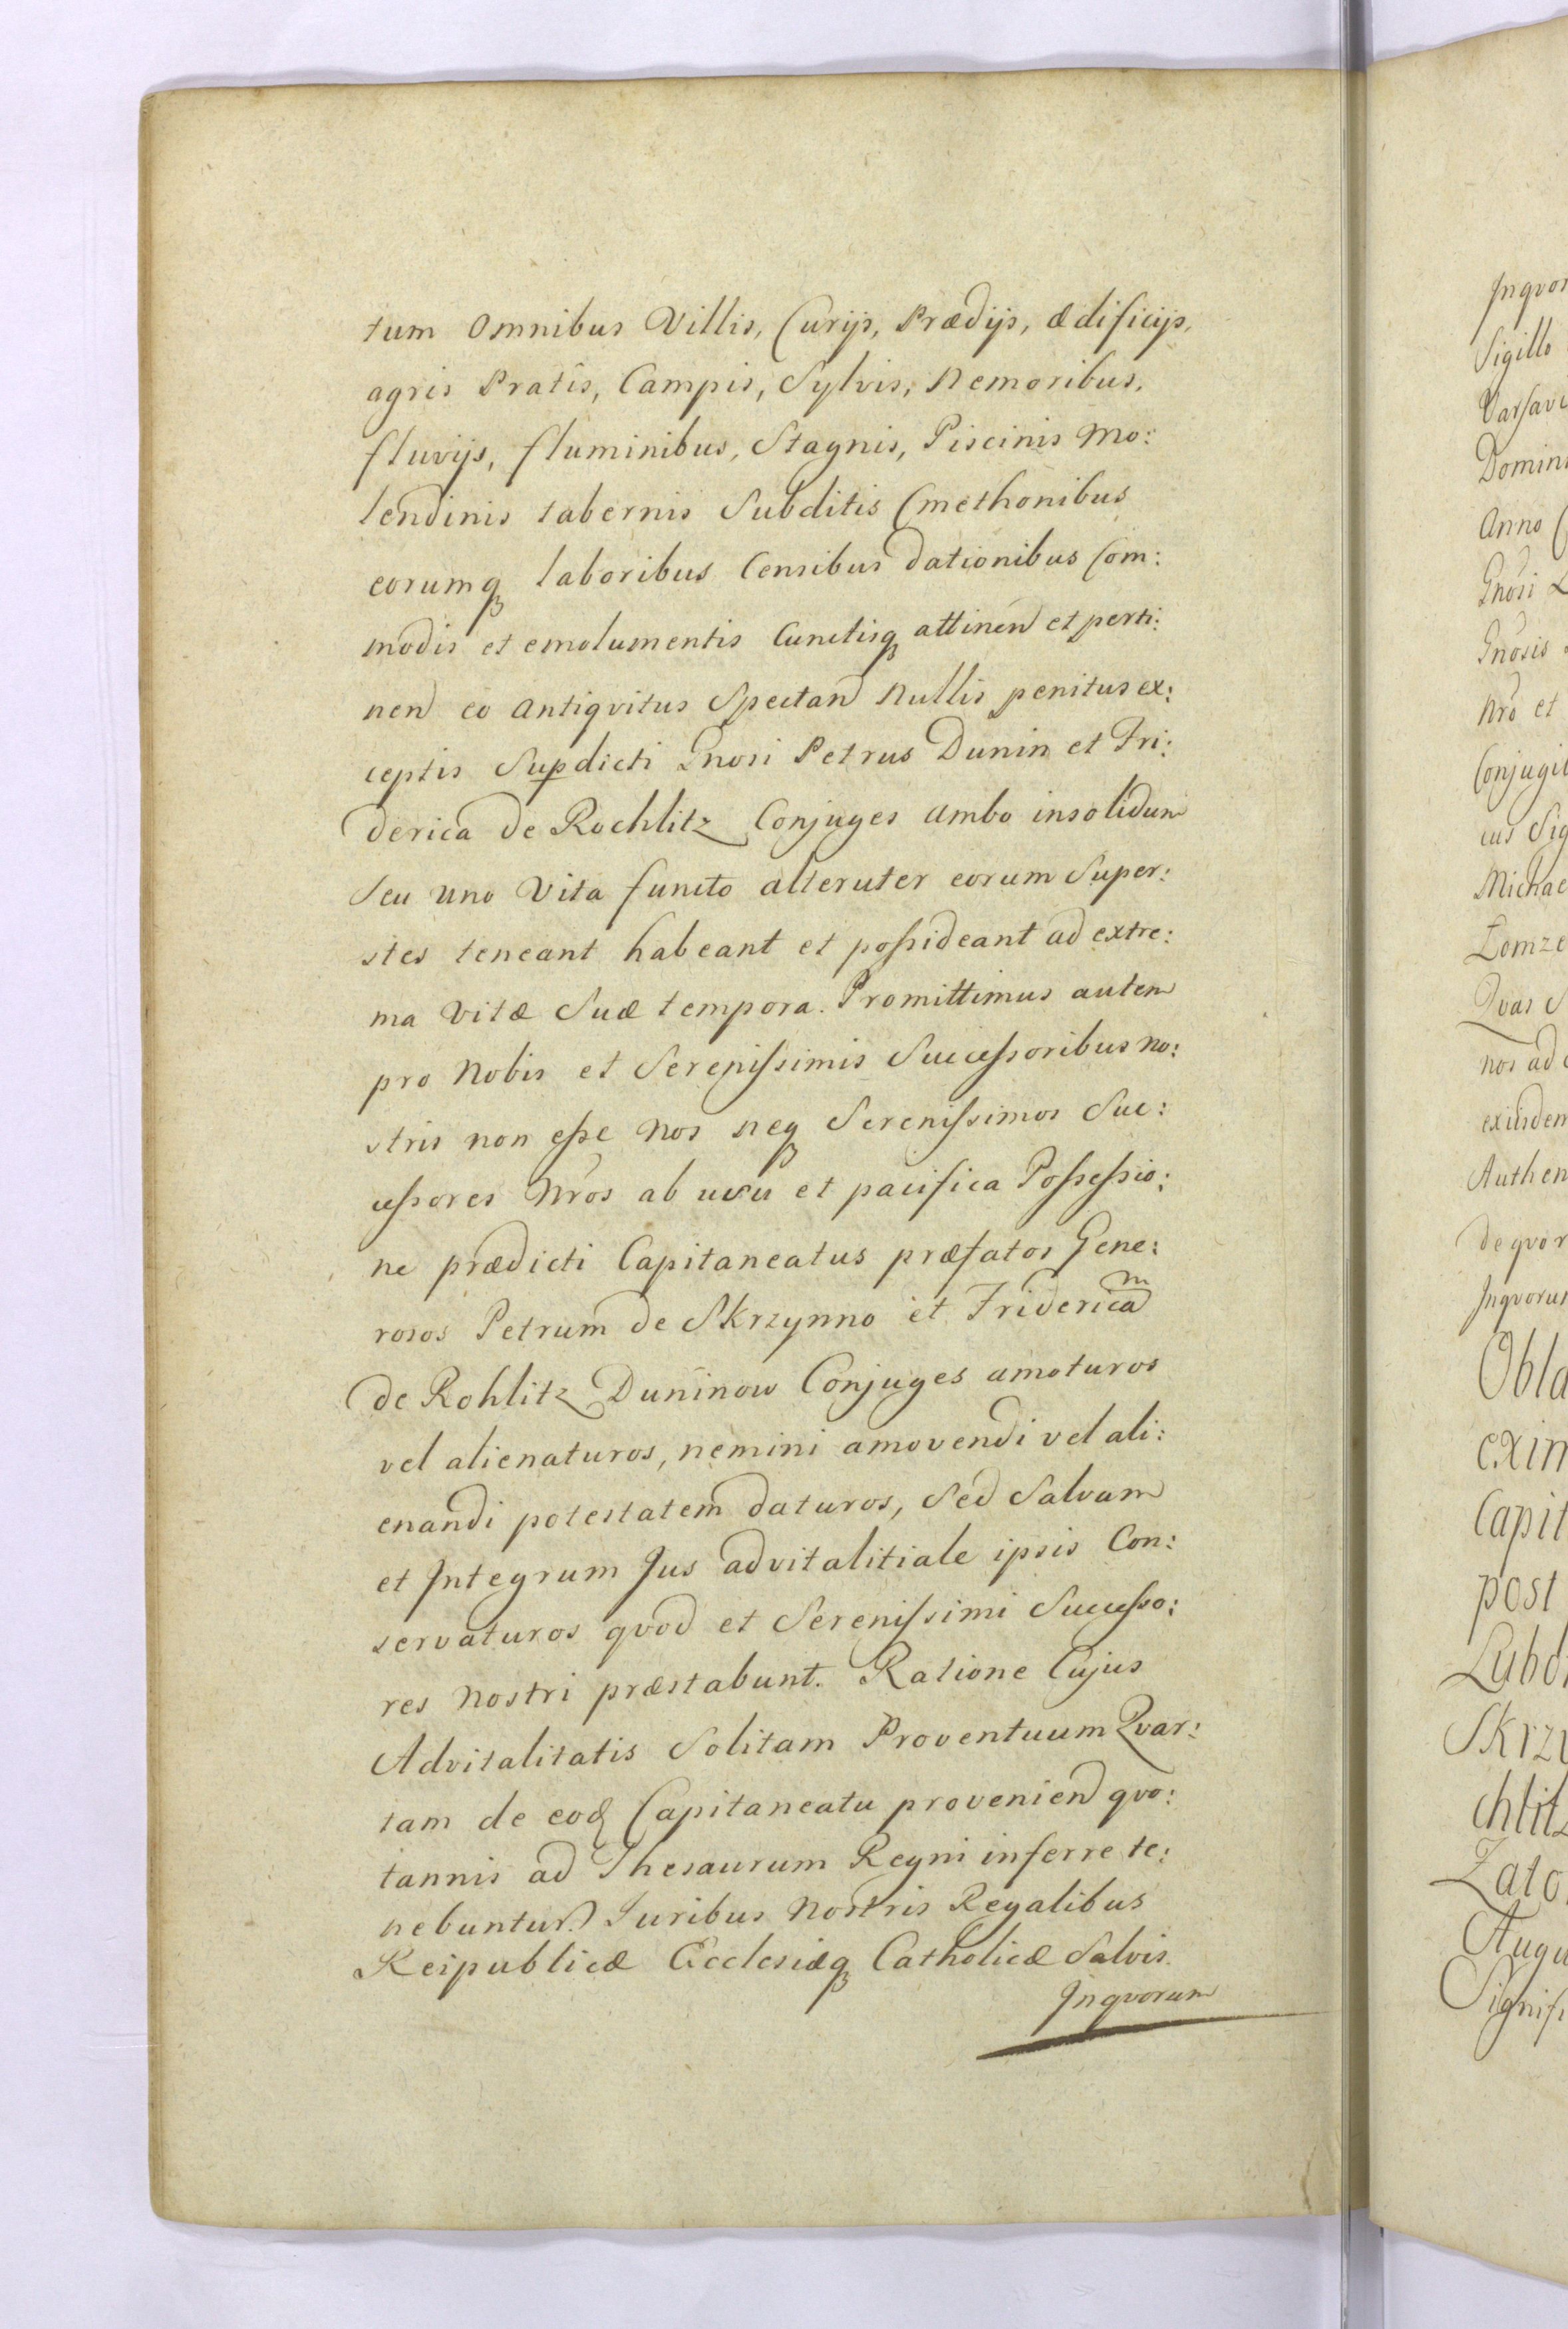 tum Omnibus Villis, Curijs, Prædijs, ædificijs,
agris Pratis, Campis, Sylvis, Nemoribus,
fluvijs, fluminibus, Stagnis, Piscinis Mo:
lendinis tabernis Subditis Cmethonibus
eorumq laboribus Censibus dationibus Com:
modis et emolumentis Cunctisq attinen et perti:
nen eo Antiqvitus Spectan Nullis penitus ex:
ceptis Supdicti Gnosi Petrus Dunin et Fri:
derica de Rochlitz Conjuges Ambo insolidum
Seu Uno Vita functo alteruter eorum Super:
stes teneant habeant et possideant ad extre:
ma Vitæ Suæ tempora. Promittimus autem
pro Nobis et Serenissimis Successoribus No:
stris non esse Nos neq Serenissimos Suc:
cessores Nros ab usu et pacifica Possessio:
ne prædicti Capitaneatus præfatos Gene:
rosos Petrum de Skrzynno et Fridericam
de Rohlitz Duninow Conjuges amoturos
vel alienaturos, nemini amovendi vel ali:
enandi potestatem daturos, Sed Salvum
et Integrum Jus advitalitiale ipsis Con:
servaturos qvod et Serenissimi Successo:
res Nostri præstabunt. Ratione Cujus
Advitalitatis Solitam Proventuum Qvar:
tam de eod Capitaneatu provenien qvo:
tannis ad Thesaurum Regni inferre te:
nebuntur. Juribus Nostris Regalibus
Reipublicæ Ecclesiæq Catholicæ Salvis.
Inqvorum
Inqvor
Sigillo
Varsavi
Domini
Anno
Gnosi
Gnosis
Nro et
Conjugib
cus Sig
Michae
Lomze
Qvas S
nos ad
exiisdem
Authen
de qvor
Inqvorum
Obla
exim
Capit
post
Lubo
Skrzy
chlitz
Zato
Augu
Signifi